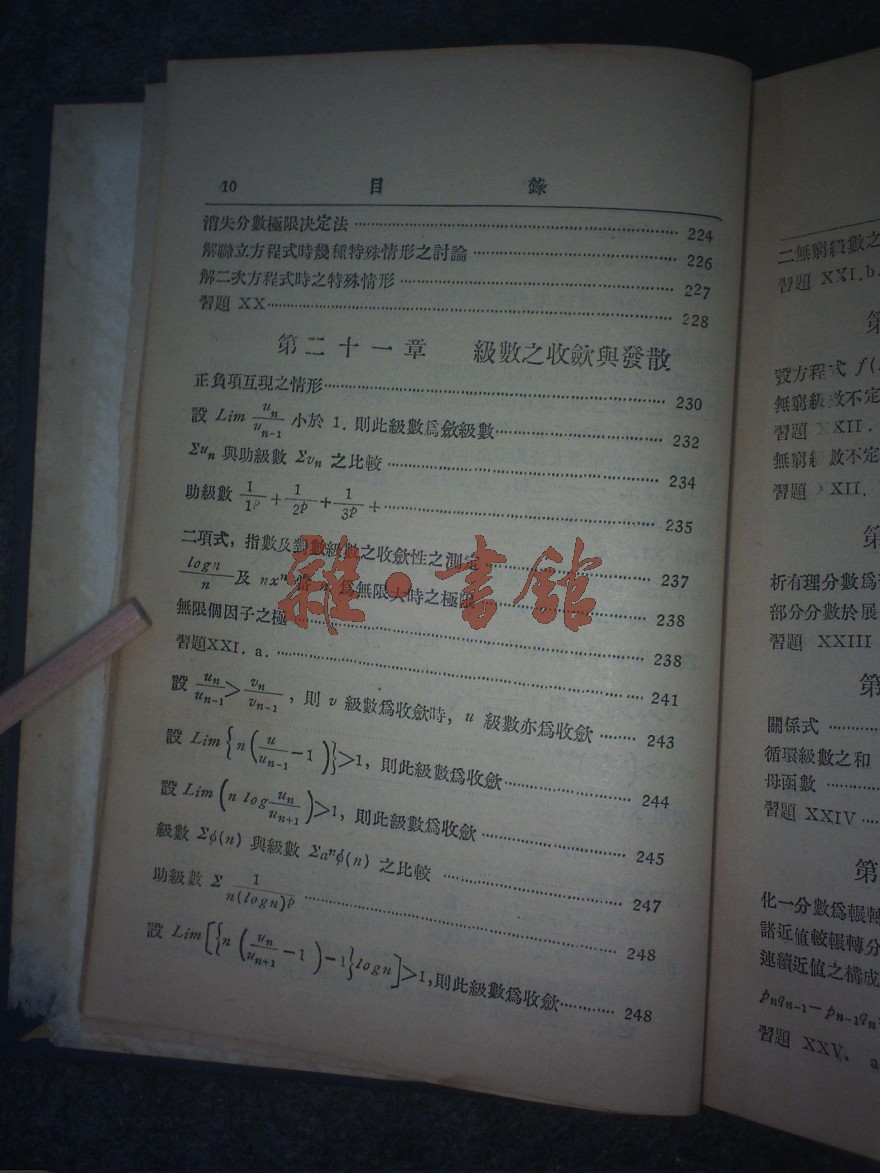 10 目 錄
消失分數極限决定法 224
解聯立方程式時幾種特殊情形之討論 226
解二次方程式時之特殊情形 227
習題 XX 228
第二十一章 級數之收歛與發散
正負項互現之情形 230
設 Lim u_n/u_{n-1} 小於 1. 則此級數爲歛級數 232
Σu_n 與助級數 Σv_n 之比較 234
助級數 1/1^p + 1/2^p + 1/3^p + 235
二項式, 指數及對數級數之收歛性之測定 237
logn/n 及 nx^n 爲無限大時之極限 238
無限個因子之極 238
習題XXI. a. 241
設 u_n/u_{n-1} > v_n/v_{n-1}, 則 v 級數爲收歛時, u 級數亦爲收歛 243
設 Lim{n(u/u_{n-1} -1)}>1, 則此級數爲收歛 244
設 Lim(n log u_n/u_{n+1})>1, 則此級數爲收歛 245
級數 Σϕ(n) 與級數 Σa^nϕ(n) 之比較 247
助級數 Σ 1/n(logn)^p 248
設 Lim[{n(u_n/u_{n+1} -1)-1}logn]>1,則此級數爲收歛 248
雜·書館
二無窮級數之
習題 XXI.b.
第
方程式 f(
無窮級數不定
習題 XXII.
無窮級數不定
習題 XXII.
第
析有理分數爲
部分分數於展
習題 XXIII
第
關係式
循環級數之和
母函數
習題 XXIV
第
化一分數爲輾轉
諸近值較輾轉分
連續近值之構成
p_nq_{n-1}-p_{n-1}q_n
習題 XXV. a